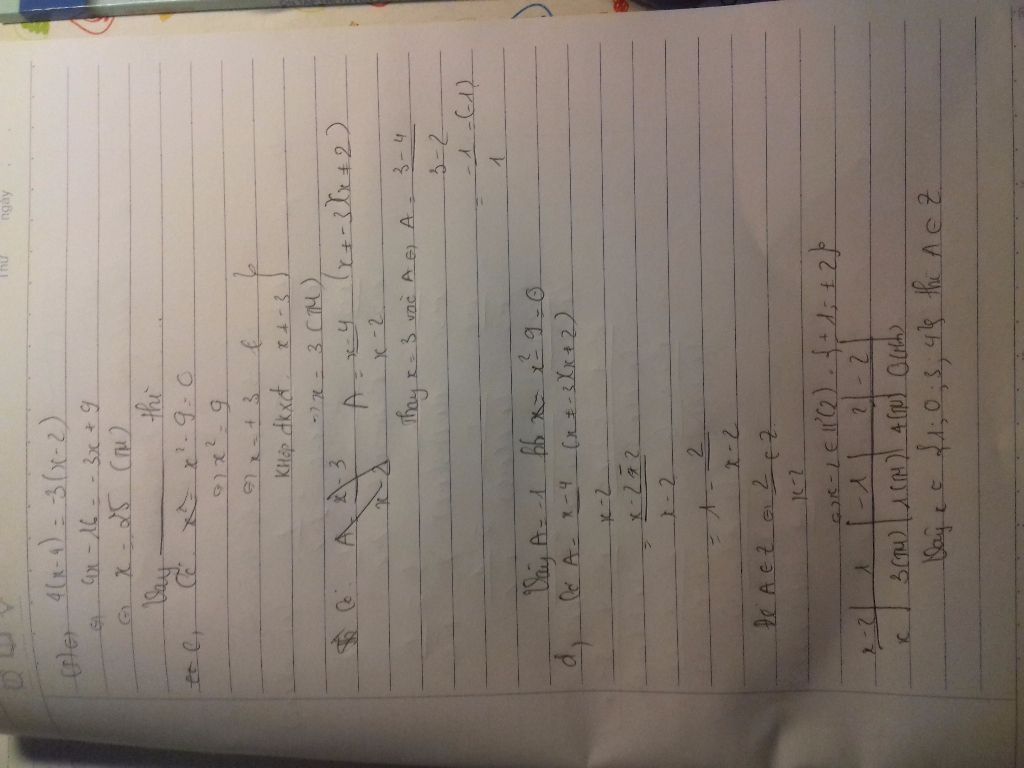 Thứ ngày
(1) ⇔ 4(x-4) = 3(x-2)
⇔ 4x - 16 = - 3x + 9
⇔ x = 25 (TM)
Vậy thì
c, Có x² - 9 = 0
⇔ x² = 9
⇔ x = ± 3
KHĐ đkxđ. x ≠ -3
⇒ x = 3 (TM)
Có A = x-4 / x-2 (x ≠ -3; x ≠ ±2)
Thay x = 3 vào A ⇔ A = 3-4 / 3-2
= -1 / 1 = (-1)
Vậy A = -1 x² - 9 = 0
d, Có A = x-4 / x-2 (x ≠ -3; x ≠ ±2)
= x-2-2 / x-2
= 1 - 2 / x-2
Để A ∈ Z ⇔ 2 / x-2 ∈ Z
⇔ x-2 ∈ Ư(2) = {±1; ±2}
x-2 | 1 | -1 | 2 | -2
x | 3(TM) | 1(TM) | 4(TM) | 0(TM)
Vậy x ∈ {1; 0; 3; 4} thì A ∈ Z